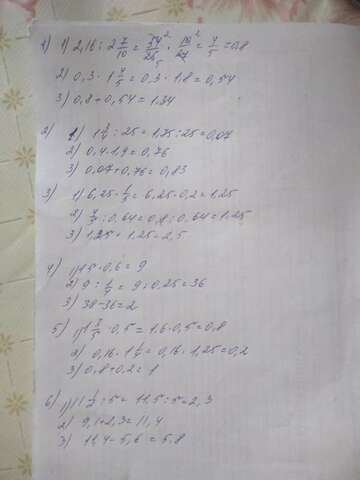 1) 1) 2,16 : 2 7/10 = 54²/25₅ · 10²/27 = 4/5 = 0,8
2) 0,3 · 1 4/5 = 0,3 · 1,8 = 0,54
3) 0,8 + 0,54 = 1,34
2) 1) 1 3/4 : 25 = 1,75 : 25 = 0,07
2) 0,4 · 1,9 = 0,76
3) 0,07 + 0,76 = 0,83
3) 1) 6,25 · 1/5 = 6,25 · 0,2 = 1,25
2) : 0,64 = 0,8 : 0,64 = 1,25
3) 1,25 + 1,25 = 2,5
4) 1) 15 · 0,6 = 9
2) 9 : 1/4 = 9 : 0,25 = 36
3) 38 - 36 = 2
5) 1) 1 3/5 · 0,5 = 1,6 · 0,5 = 0,8
2) 0,16 · 1 1/4 = 0,16 · 1,25 = 0,2
3) 0,8 + 0,2 = 1
6) 1) 11 1/2 : 5 = 11,5 : 5 = 2,3
2) 9,1 + 2,3 = 11,4
3) 11,4 - 5,6 = 5,8